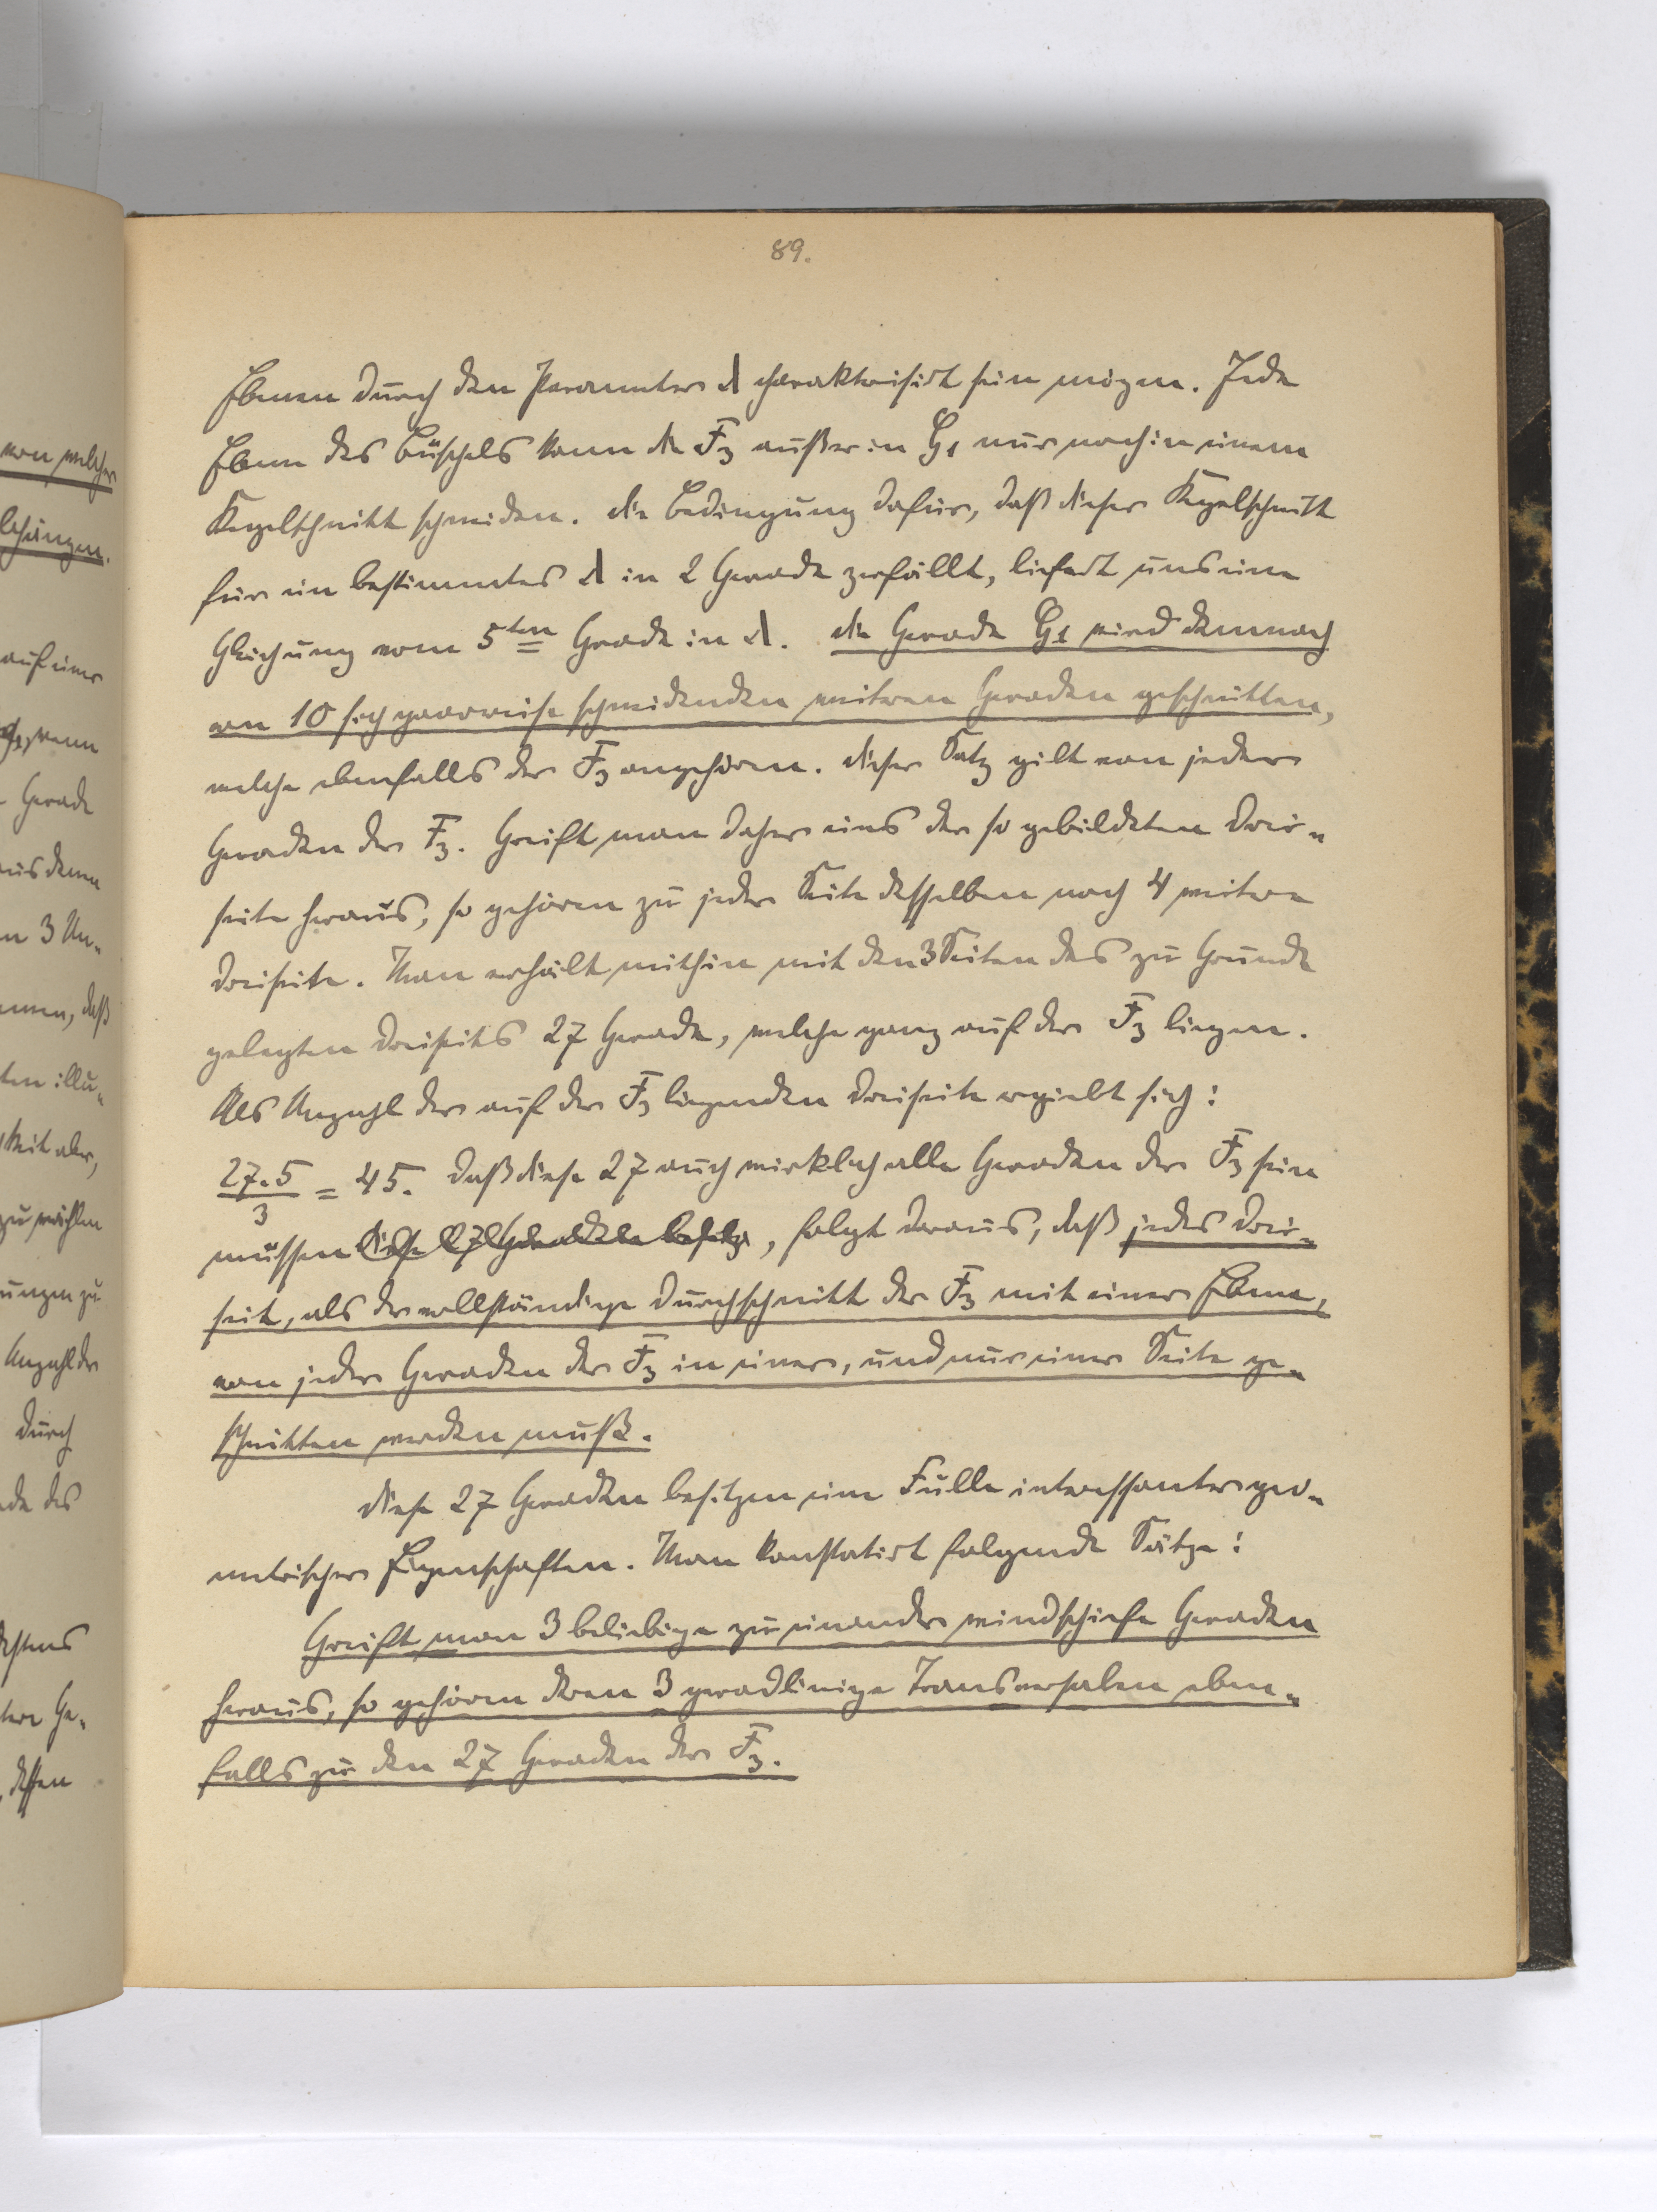 89.
Ebenen durch den Parameter λ charakterisirt sein mögen. Jede
Ebene des Büschels kann die F₃ außer in G₁ nur noch in einem
Kegelschnitt schneiden. Die Bedingung dafür, daß dieser Kegelschnitt
für ein bestimmtes λ in 2 Gerade zerfällt, liefert uns eine
Gleichung vom 5ten Grade in λ. Die Gerade G₁ wird demnach
von 10 sich paarweise schneidenden weiteren Geraden geschnitten,
welche ebenfalls der F₃ angehören. Dieser Satz gilt von jeder
Geraden der F₃. Greift man daher eins der so gebildeten Drei-
seite heraus, so gehören zu jeder Seite desselben noch 4 weitere
Dreiseite. Man erhält mithin mit den 3 Seiten des zu Grunde
gelegten Dreiseits 27 Gerade, welche ganz auf der F₃ liegen.
Als Anzahl der auf der F₃ liegenden Dreiseite ergiebt sich:
27·5/3 = 45. Daß diese 27 auch wirklich alle Geraden der F₃ sein
müssen, folgt daraus, daß jedes Drei-
seit, als der vollständige Durchschnitt der F₃ mit einer Ebene,
von jeder Geraden der F₃ in einer, und nur einer Seite ge-
schnitten werden muß.
Diese 27 Geraden besitzen eine Fülle interessanter geo-
metrischer Eigenschaften. Man konstatirt folgende Sätze:
Greift man 3 beliebige zu einander windschiefe Geraden
heraus, so gehören deren 3 geradlinige Transversalen eben-
falls zu den 27 Geraden der F₃.
von welcher
auf einer
wenn
Gerade
aus denen
3 Un-
daß
ten illu-
keit aber,
zu wählen
ungen zu
Anzahl der
durch
des
Ge-
dessen